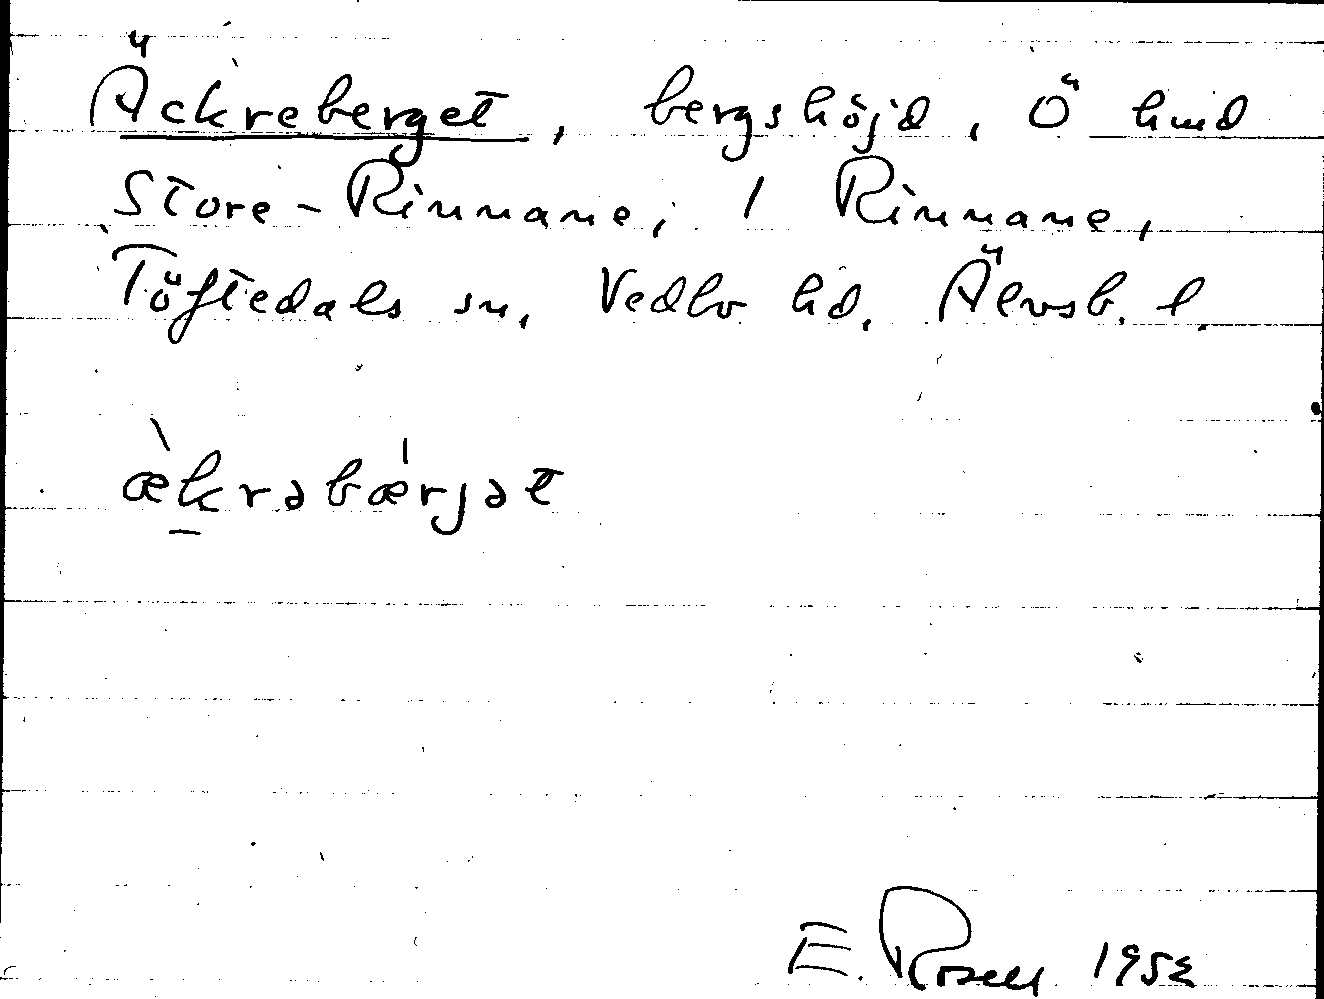 Äckreberget, bergshöjd, Ö hmd
Store-Rinnane, 1 Rinnane,
Töftedals sn, Vedbo hd. Älvsb. l.
æ̀k̠rəbǽrjət
E. Rosell 1952